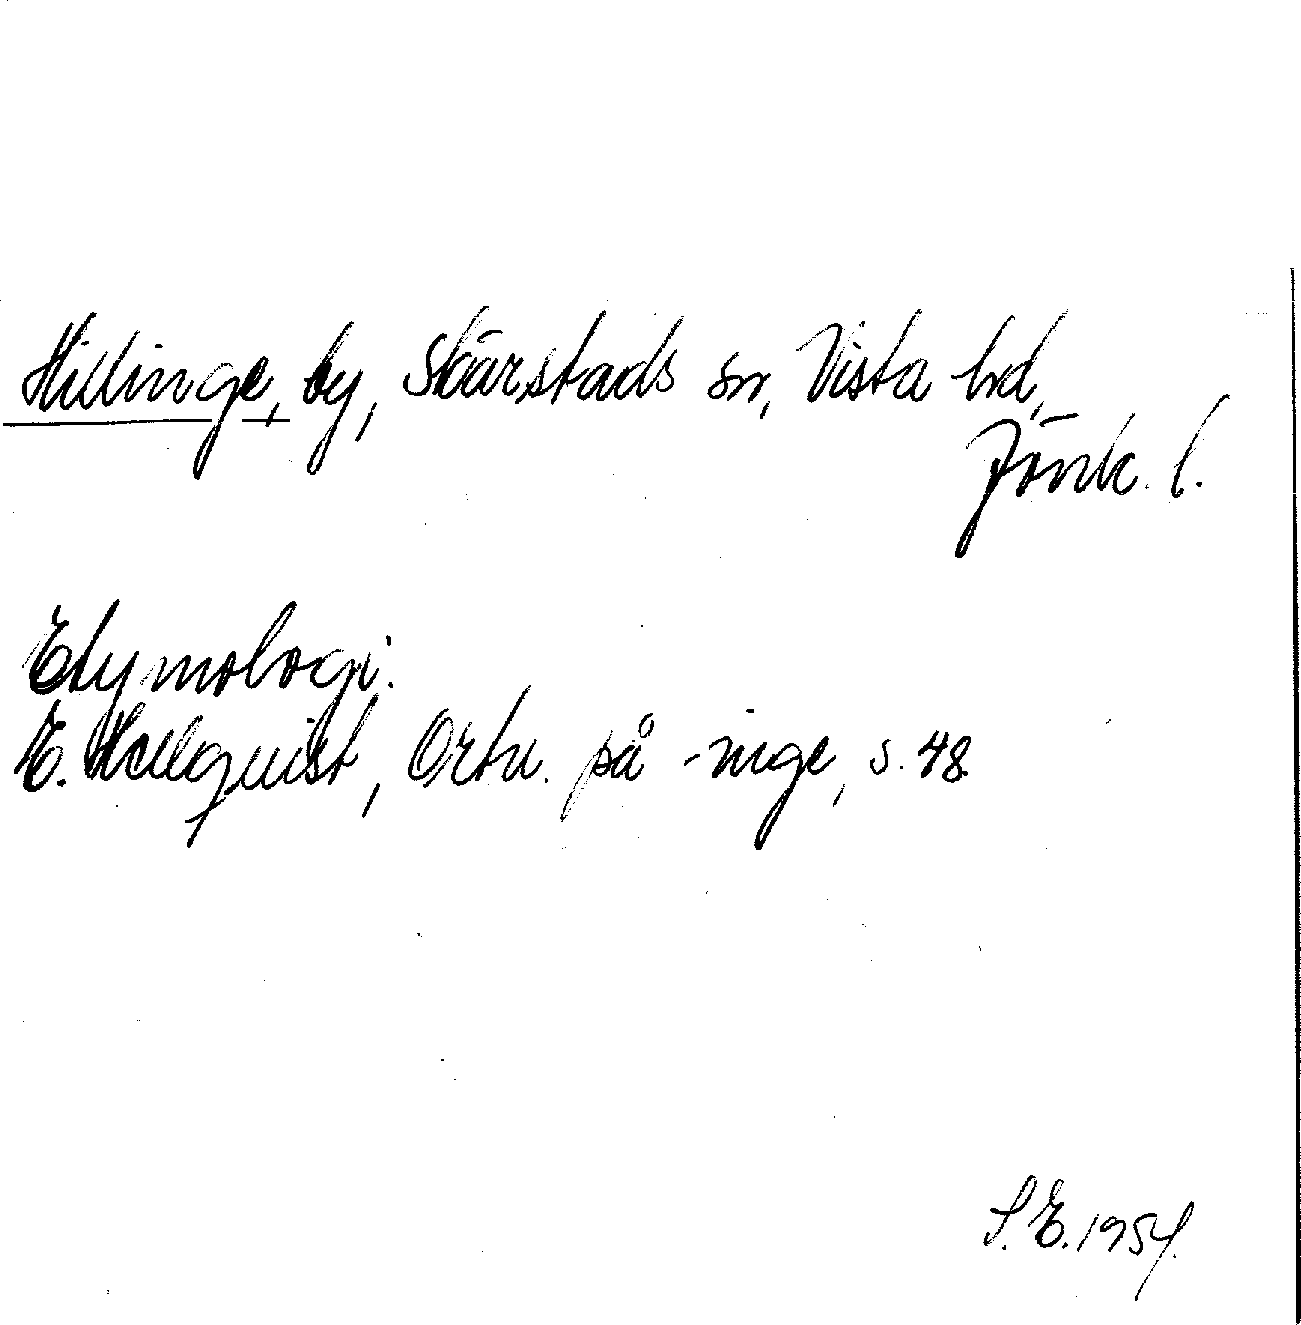 Hillinge, by, Skärstads sn, Vista hd,
Jönk. l.
Etymologi:
E. Hellquist, Ortn. på -inge, s. 48.
S. E. 1954.